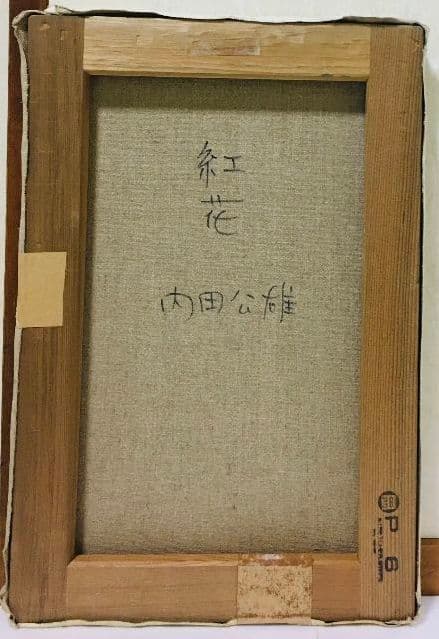 紅
花
内田公雄
P 6